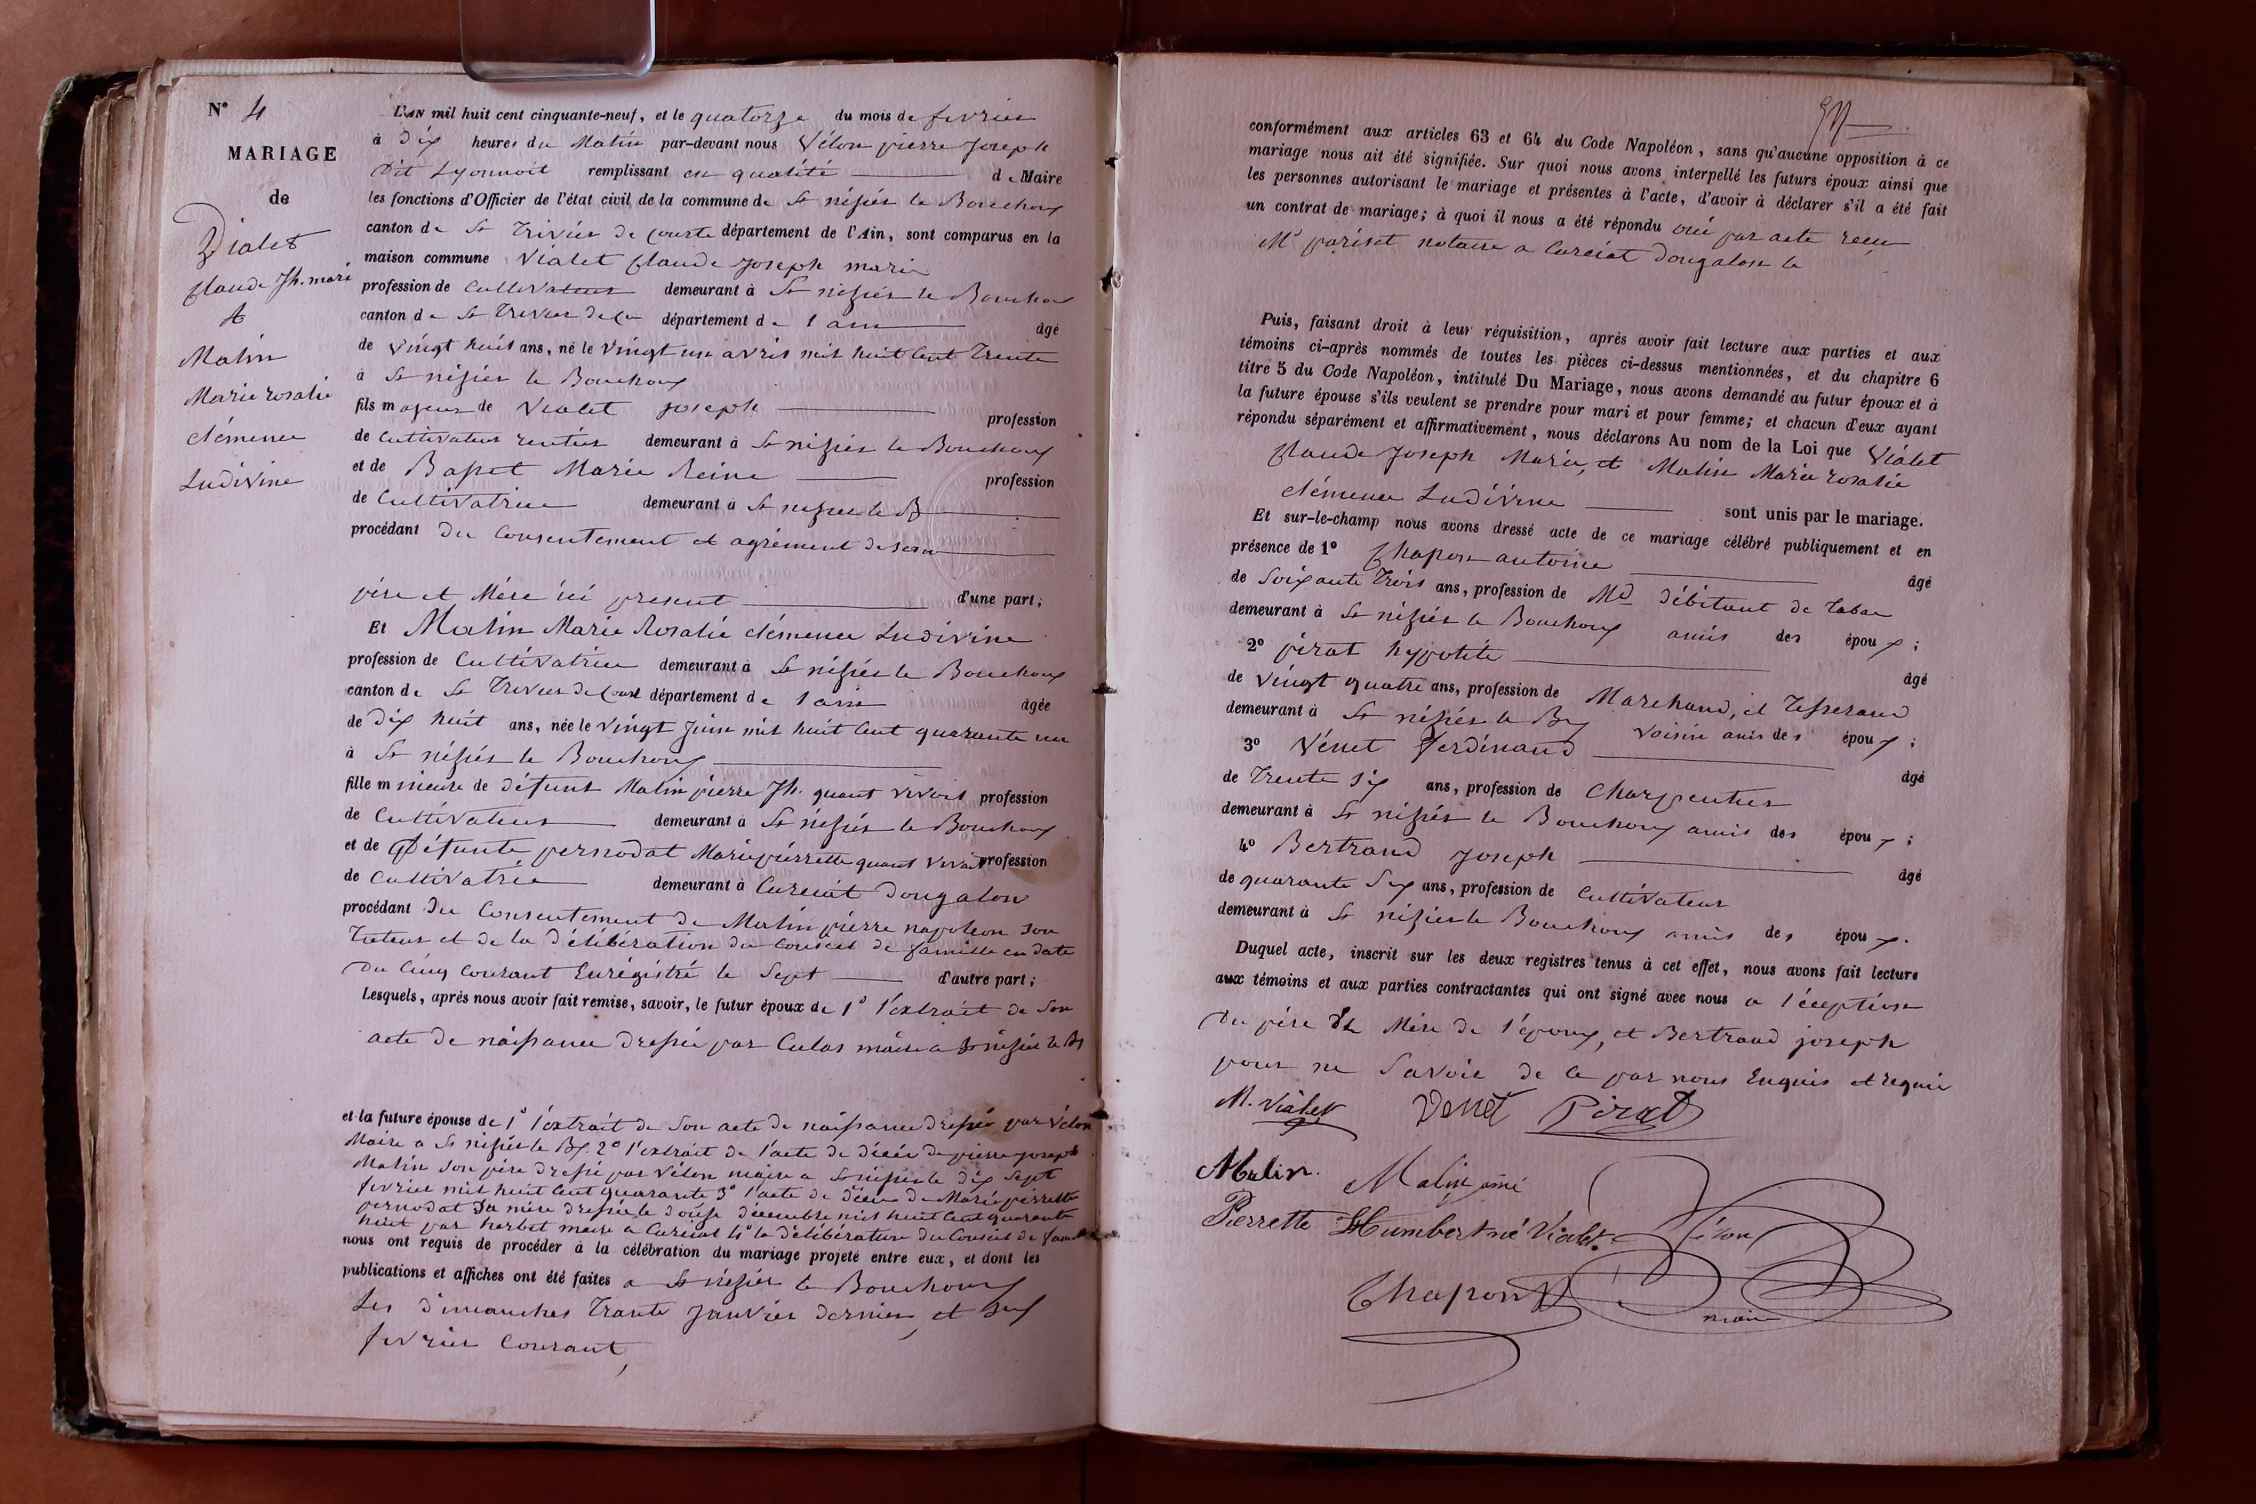 N° 4
MARIAGE
de
Vialet
Claude Jh. marie
et
Malin
Marie rosalie
clémence
Ludivine
L'AN mil huit cent cinquante-neuf, et le quatorze du mois de fevrier
à dix heures du Matin par-devant nous Vélon pierre joseph
Dit Lyonnois remplissant en qualité de Maire
les fonctions d'Officier de l'état civil de la commune de St nizier le Bouchoux
canton de St Trivier de courte département de l'Ain, sont comparus en la
maison commune Vialet Claude joseph marie
profession de cultivateur demeurant à St nizier le Bouchoux
canton de St Trivier de Cou département de l ain âgé
de vingt huit ans, né le vingt un avris mil huit Cent Trente
à St nizier le Bouchoux
fils majeur de Vialet joseph profession
de cultivateur rentier demeurant à St nizier le Bouchoux
et de Basset Marie Reine profession
de Cultivatrice demeurant à St nizier le B
procédant du Consentement et agrément de ses
père et Mère ici present d'une part;
Et Malin Marie Rosalie clémence Ludivine
profession de Cultivatrice demeurant à St nizier le Bouchoux
canton de St Trivier de Court département de l ain âgée
de dix huit ans, née le vingt juin mil huit Cent quarante un
à St nizier le Bouchoux
fille mineure de défunt Malin pierre Jh. quant vivoit profession
de Cultivateur demeurant à St nizier le Bouchoux
et de Défunte pernodat Marie pierrette quant vivait profession
de Cultivatrice demeurant à Curciat Dongalon
procédant du Consentement de Malin pierre napoleon son
Tuteur et de la délibération du Conseil de famille en date
du Cinq Courant Enrégistré le Sept d'autre part;
Lesquels, après nous avoir fait remise, savoir, le futur époux de 1° l'extrait de Son
acte de naissance dressé par Culas maire a St nizier le Bx
et la future épouse de 1° l'extrait de Son acte de naissance dressé par Vélon
Maire a St nizier le Bx 2° l'extrait de l'acte de décès de pierre joseph
Malin son père dressé par Vélon maire a St nizier le dix Sept
fevrier mil huit Cent quarante 3° l'acte de décès de Marie pierrette
pernodat Sa mère dressé le douze décembre mil huit Cent quarante
huit par herbet maire a Curciat 4° la délibération du Conseil de famille
nous ont requis de procéder à la célébration du mariage projeté entre eux, et dont les
publications et affiches ont été faites a St nizier le Bouchoux
Les dimanches Trante janvier dernier, et Six
fevrier Courant,
conformément aux articles 63 et 64 du Code Napoléon, sans qu'aucune opposition à ce
mariage nous ait été signifiée. Sur quoi nous avons interpellé les futurs époux ainsi que
les personnes autorisant le mariage et présentes à l'acte, d'avoir à déclarer s'il a été fait
un contrat de mariage; à quoi il nous a été répondu oui par acte reçu
Me pariset notaire a Curciat Dongalon le
Puis, faisant droit à leur réquisition, après avoir fait lecture aux parties et aux
témoins ci-après nommés de toutes les pièces ci-dessus mentionnées, et du chapitre 6
titre 5 du Code Napoléon, intitulé Du Mariage, nous avons demandé au futur époux et à
la future épouse s'ils veulent se prendre pour mari et pour femme; et chacun d'eux ayant
répondu séparément et affirmativement, nous déclarons Au nom de la Loi que Vialet
Claude Joseph Marie, et Malin Marie rosalie
clémence Ludivine sont unis par le mariage.
Et sur-le-champ nous avons dressé acte de ce mariage célébré publiquement et en
présence de 1° Chapon antoine âgé
de Soixante Trois ans, profession de Md débitant de Tabac
demeurant à St nizier le Bouchoux amis des époux;
2° pirat hypolite âgé
de Vingt quatre ans, profession de Marchand, et Tisserand
demeurant à St nizier le Bx voisin amis des époux;
3° Vénet Ferdinand âgé
de Trente Six ans, profession de Charpentier
demeurant à St nizier le Bouchoux amis des époux;
4° Bertrand joseph âgé
de quarante Six ans, profession de Cultivateur
demeurant à St nizier le Bouchoux amis des époux.
Duquel acte, inscrit sur les deux registres tenus à cet effet, nous avons fait lecture
aux témoins et aux parties contractantes qui ont signé avec nous a l'éception
du père et Mère de l'époux, et Bertrand joseph
pour ne Savoir de ce par nous Enquis et requis
M. Vialet Venet Pirat
Malin. Malin ainé
Pierrette Humbert né Vialet. Vélon
Chapon maire